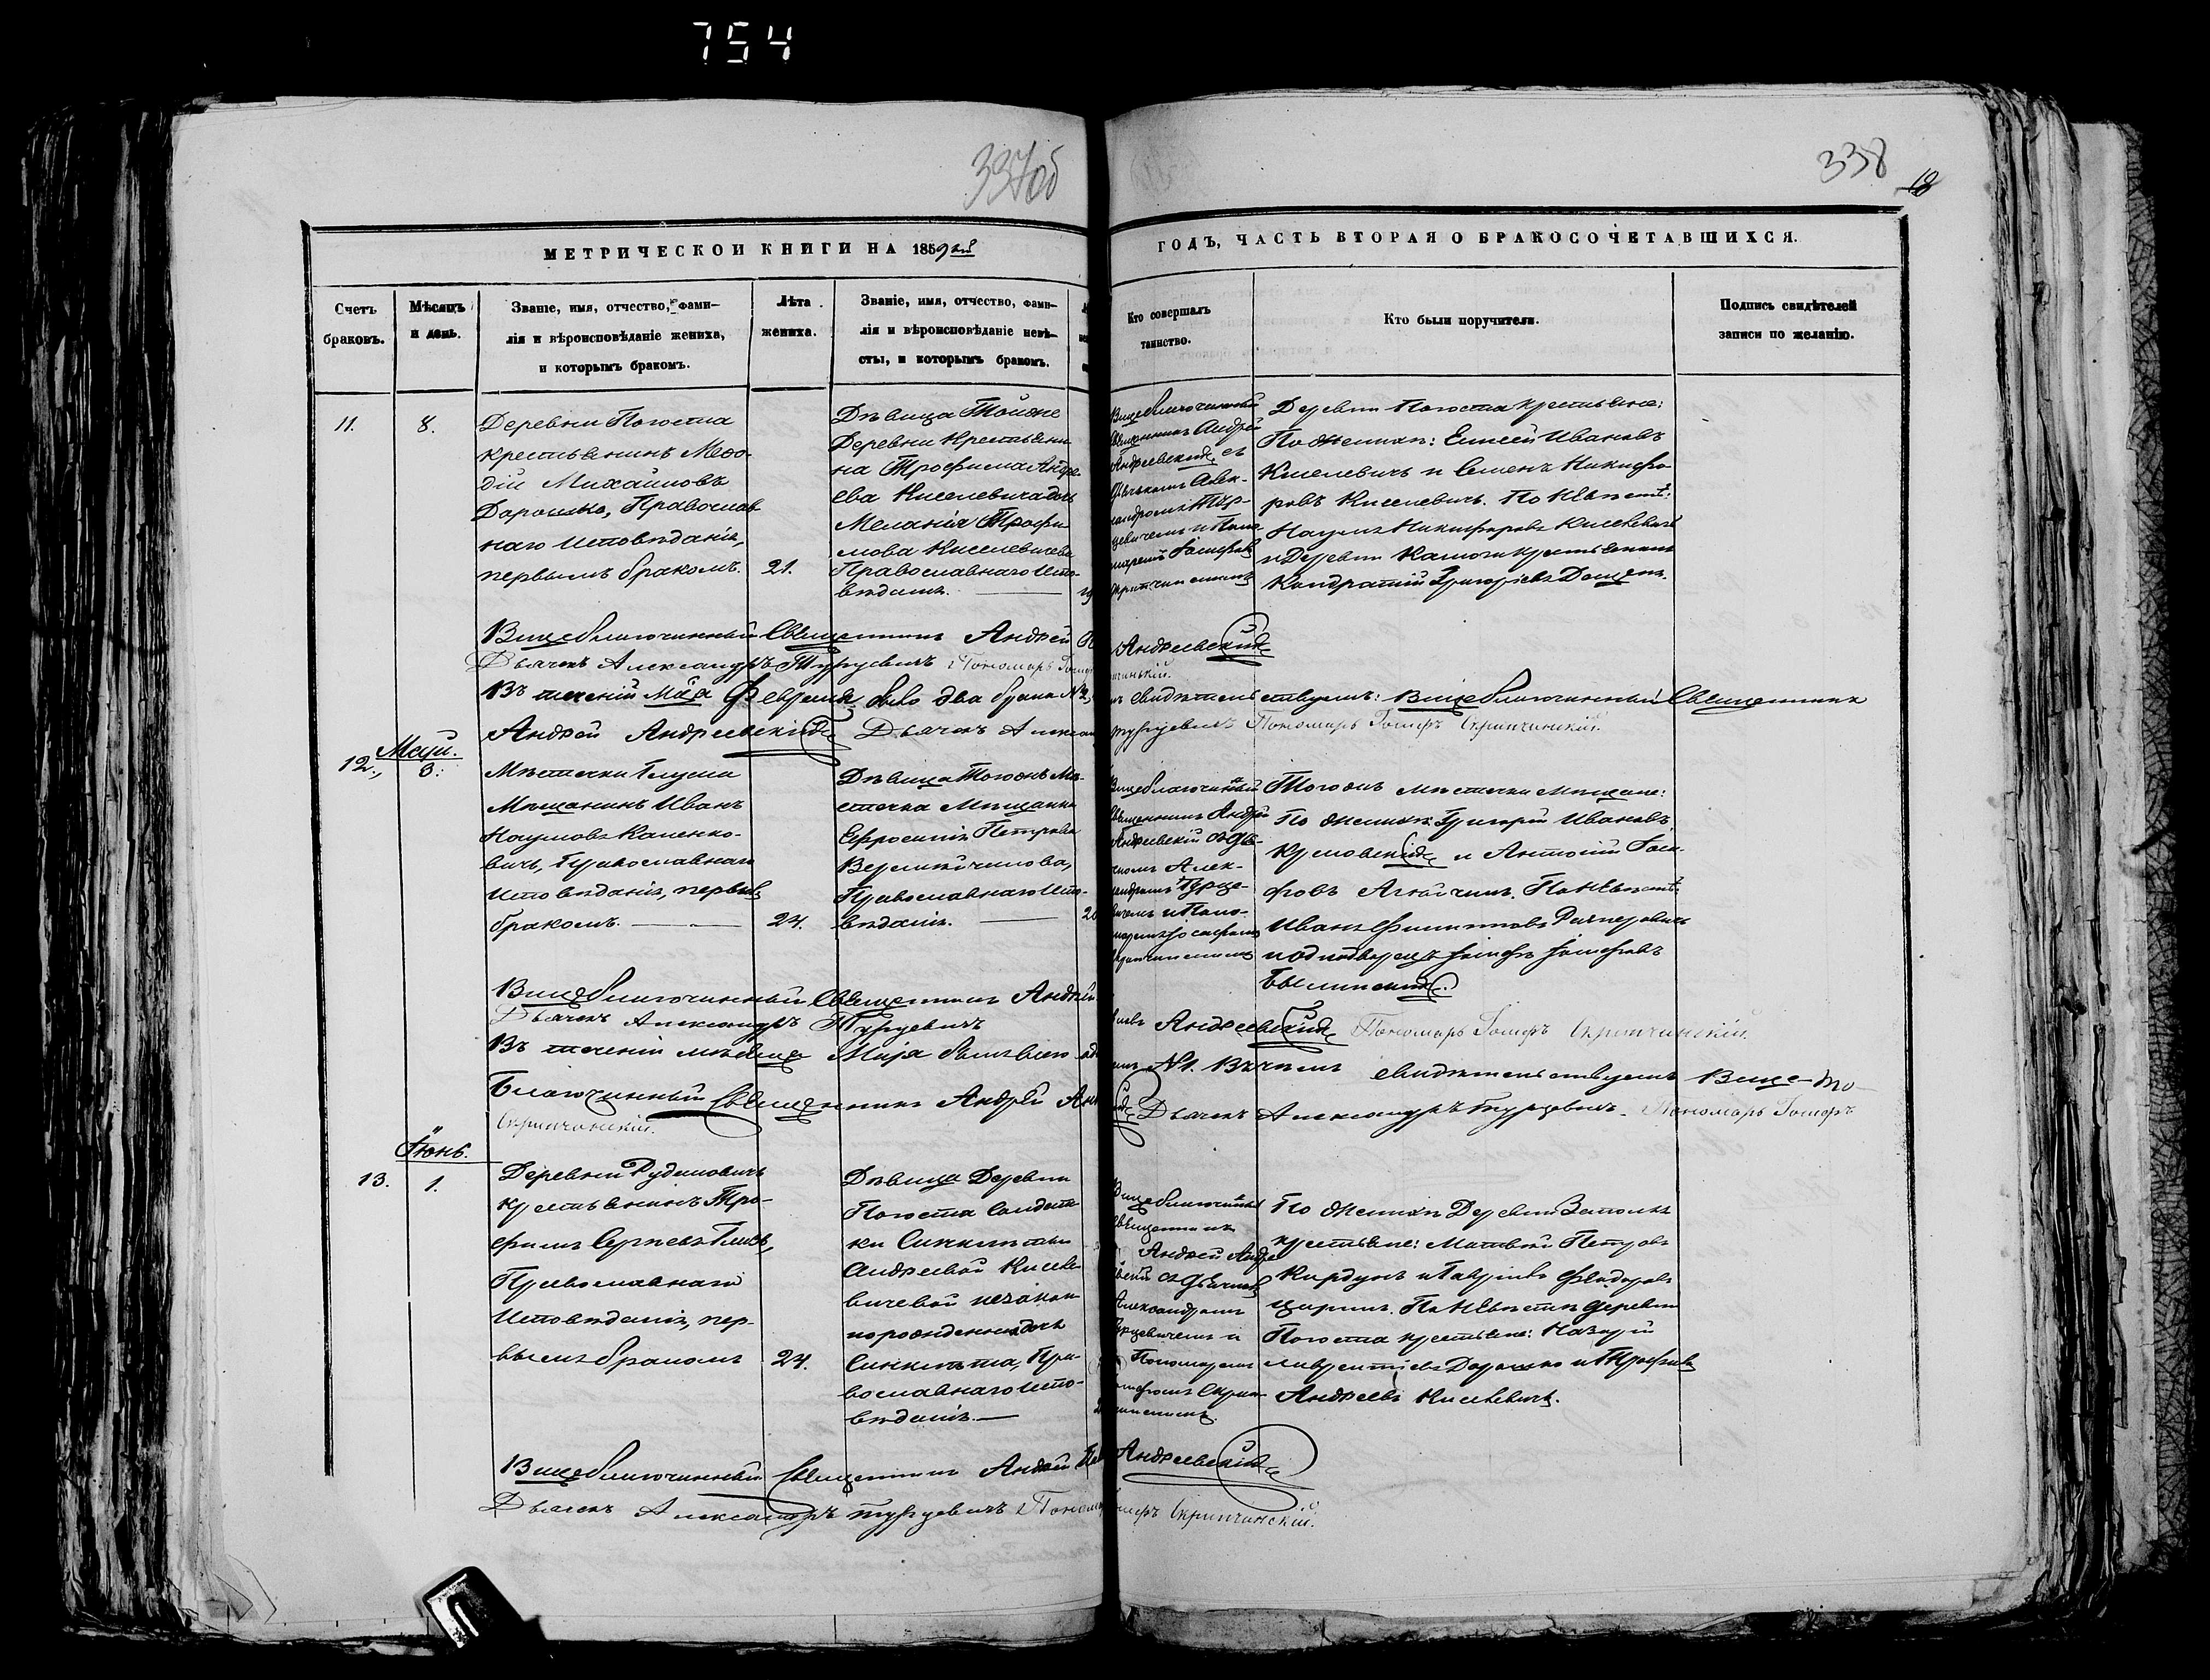 754
337об
338
18
МЕТРИЧЕСКОЙ КНИГИ НА 1859й
ГОДЪ, ЧАСТЬ ВТОРАЯ О БРАКОСОЧЕТАВШИХСЯ.
Счетъ
браковъ.
Мѣсяцъ
и день.
Званіе, имя, отчество, фами-
лія и вѣроисповѣданіе жениха,
и которымъ бракомъ.
Лѣта
жениха.
Званіе, имя, отчество, фами-
лія и вѣроисповѣданіе невѣ-
сты, и которымъ бракомъ.
Кто совершалъ
таинство.
Кто были поручители.
Подпись свидѣтелей
записи по желанію.
11.
8.
Деревни Погоста
крестьянинъ Меѳо-
дій Михайловъ
Дорошко, Православ
наго Исповѣданія,
первымъ бракомъ.
21.
Дѣвица Тойже
Деревни Крестьяни
на Трофима Андре
ева Киселевича дочь
Меланія Трофи
мова Киселевичева
Православнаго Испо-
вѣданія.
Вицеблагочинный
Священникъ Андрей
Андреевскій съ
Дьячкомъ Алек-
сандромъ Тур-
цевичемъ и Поно
маремъ Іосифомъ
Скрипчинскимъ
Деревни Погоста крестьяне:
По Женихѣ: Елисей Ивановъ
Киселевичъ и Семенъ Никифо
ровъ Киселевичъ. По Невѣстѣ:
Наумъ Никифоровъ Киселевичъ
и Деревни крестьянинъ
Кондратій Григорьевъ
Вицеблагочинный Священникъ Андрей Андреевскій
Дьячекъ Александръ Турцевичъ Пономарь
Въ теченіи Мая Февраля было два брака
свидѣтельствуемъ: Вицеблагочинный Священникъ
Андрей Андреевскій Дьячекъ Алексан
Турцевичъ Пономарь Іосифъ Скрипчинскій.
Май.
12.
3.
Мѣстечка Глуска
Мѣщанинъ Иванъ
Наумовъ Каленко-
вичъ, Православнаго
Исповѣданія, первымъ
бракомъ.
24.
Дѣвица Тогожъ Мѣ-
стечка Мѣщанка
Ефросинія Петрова
Православнаго Испо-
вѣданія.
Вицеблагочинный
Священникъ Андрей
Андреевскій съ Дья-
чкомъ Алек-
сандромъ Турце-
вичемъ и Поно-
маремъ Іосифомъ
Скрипчинскимъ
Тогожъ мѣстечка Мѣщане:
По Женихѣ Григорій Ивановъ
и Антоній Іоси-
фовъ По Невѣстѣ
Иванъ Филиповъ
Іосифъ Іосифовъ
Былинскій.
Вицеблагочинный Священникъ Андрей
Андреевскій Пономарь Іосифъ Скрипчинскій.
Дьячекъ Александръ Турцевичъ
Въ теченіи мѣсяца Мая былъ всего
№1. Въ чемъ свидѣтельствуемъ Вице-
Благочинный Священникъ Андрей
Дьячекъ Александръ Турцевичъ. Пономарь Іосифъ
Скрипчинскій.
Іюнь.
13.
1.
Деревни Рудеповичъ
крестьянинъ Тро-
фимъ Сергѣевъ
Православнаго
Исповѣданія, пер-
вымъ бракомъ
24.
Дѣвица Деревни
Погоста Солдат
ки Синклитіи
Андреевой Киселе
вичевой незакон
норожденная дочь
Синклита, Пра-
вославнаго Испо-
вѣданія.
Вицеблагочинный
Священникъ
Андрей Андре
евскій съ Дьячкомъ
Александромъ
Турцевичемъ и
Пономаремъ
Іосифомъ Скрип
чинскимъ.
По Женихѣ Деревни
крестьяне: Матвѣй Петровъ
Кардунъ и Гаврило Ѳедоровъ
По Невѣстѣ деревни
Погоста крестьяне: Назарій
Лаврентіевъ Дорошко и Трофимъ
Андреевъ Киселевичъ.
Вицеблагочинный Священникъ Андрей Андреевскій
Дьячекъ Александръ Турцевичъ Пономарь Іосифъ Скрипчинскій.